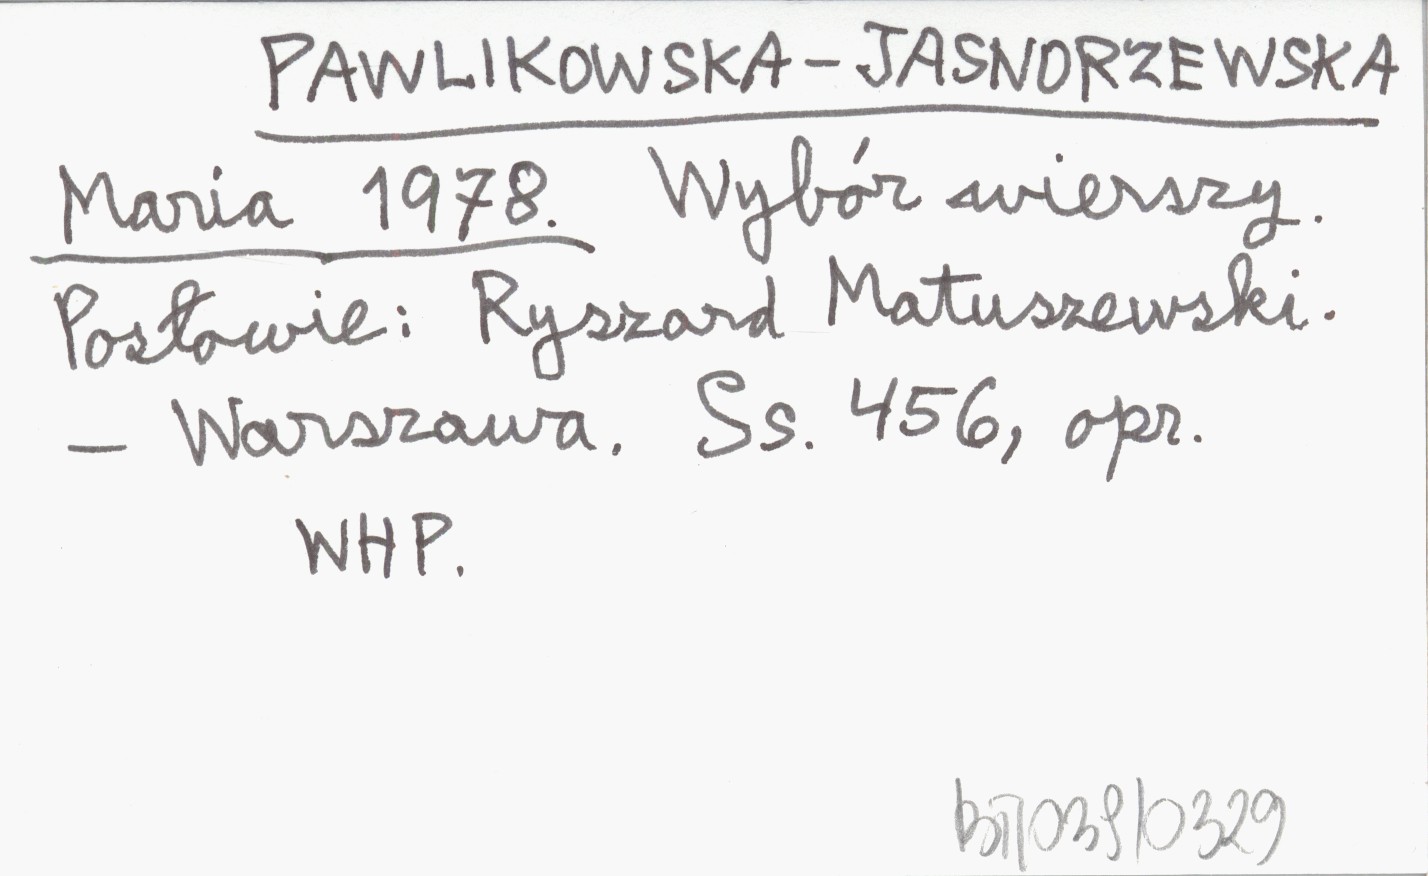 PAWLIKOWSKA-JASNORZEWSKA
Maria 1978. Wybór wierszy.
Posłowie: Ryszard Matuszewski.
– Warszawa. Ss. 456, opr.
WHP.